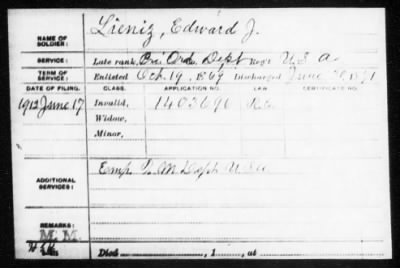 NAME OF SOLDIER: Lieniz, Edward J.
SERVICE: Late rank, Ord. Dept Reg't U S A
TERM OF SERVICE: Enlisted Oct. 19, 1869 Discharged June
DATE OF FILING. CLASS. APPLICATION NO. LAW. CERTIFICATE NO.
1912 June 17 Invalid,
Widow,
Minor,
ADDITIONAL SERVICES: Emp. Q M Dept. U.S.A.
REMARKS:
M. M.
Died , 1 , at